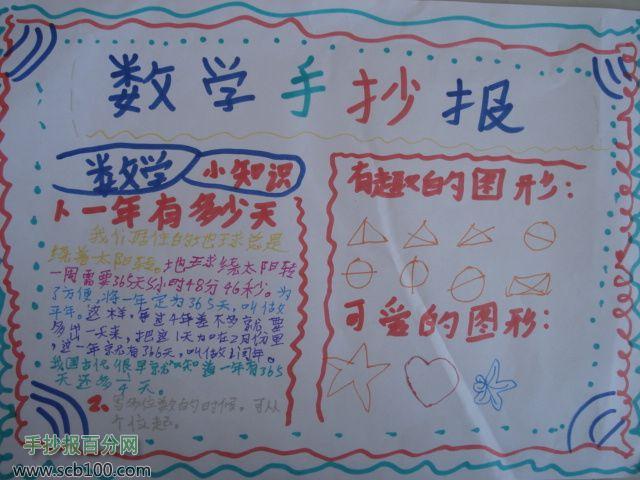 数学手抄报
数学 小知识
1、一年有多少天
我们居住的地球总是
绕着太阳转。地球绕太阳转
一周需要365天5小时48分46秒。为
了方便,将一年定为365天,叫做
平年。这样,每过4年差不多就要
多出一天来,把这1天加在2月份里,
这一年就有366天,叫做闰年。
我国古代很早就知道一年有365
天还多 天
2、写多位数的时候,可从
个位起。
有趣的图形:
可爱的图形:
手抄报百分网
www.scb100.com